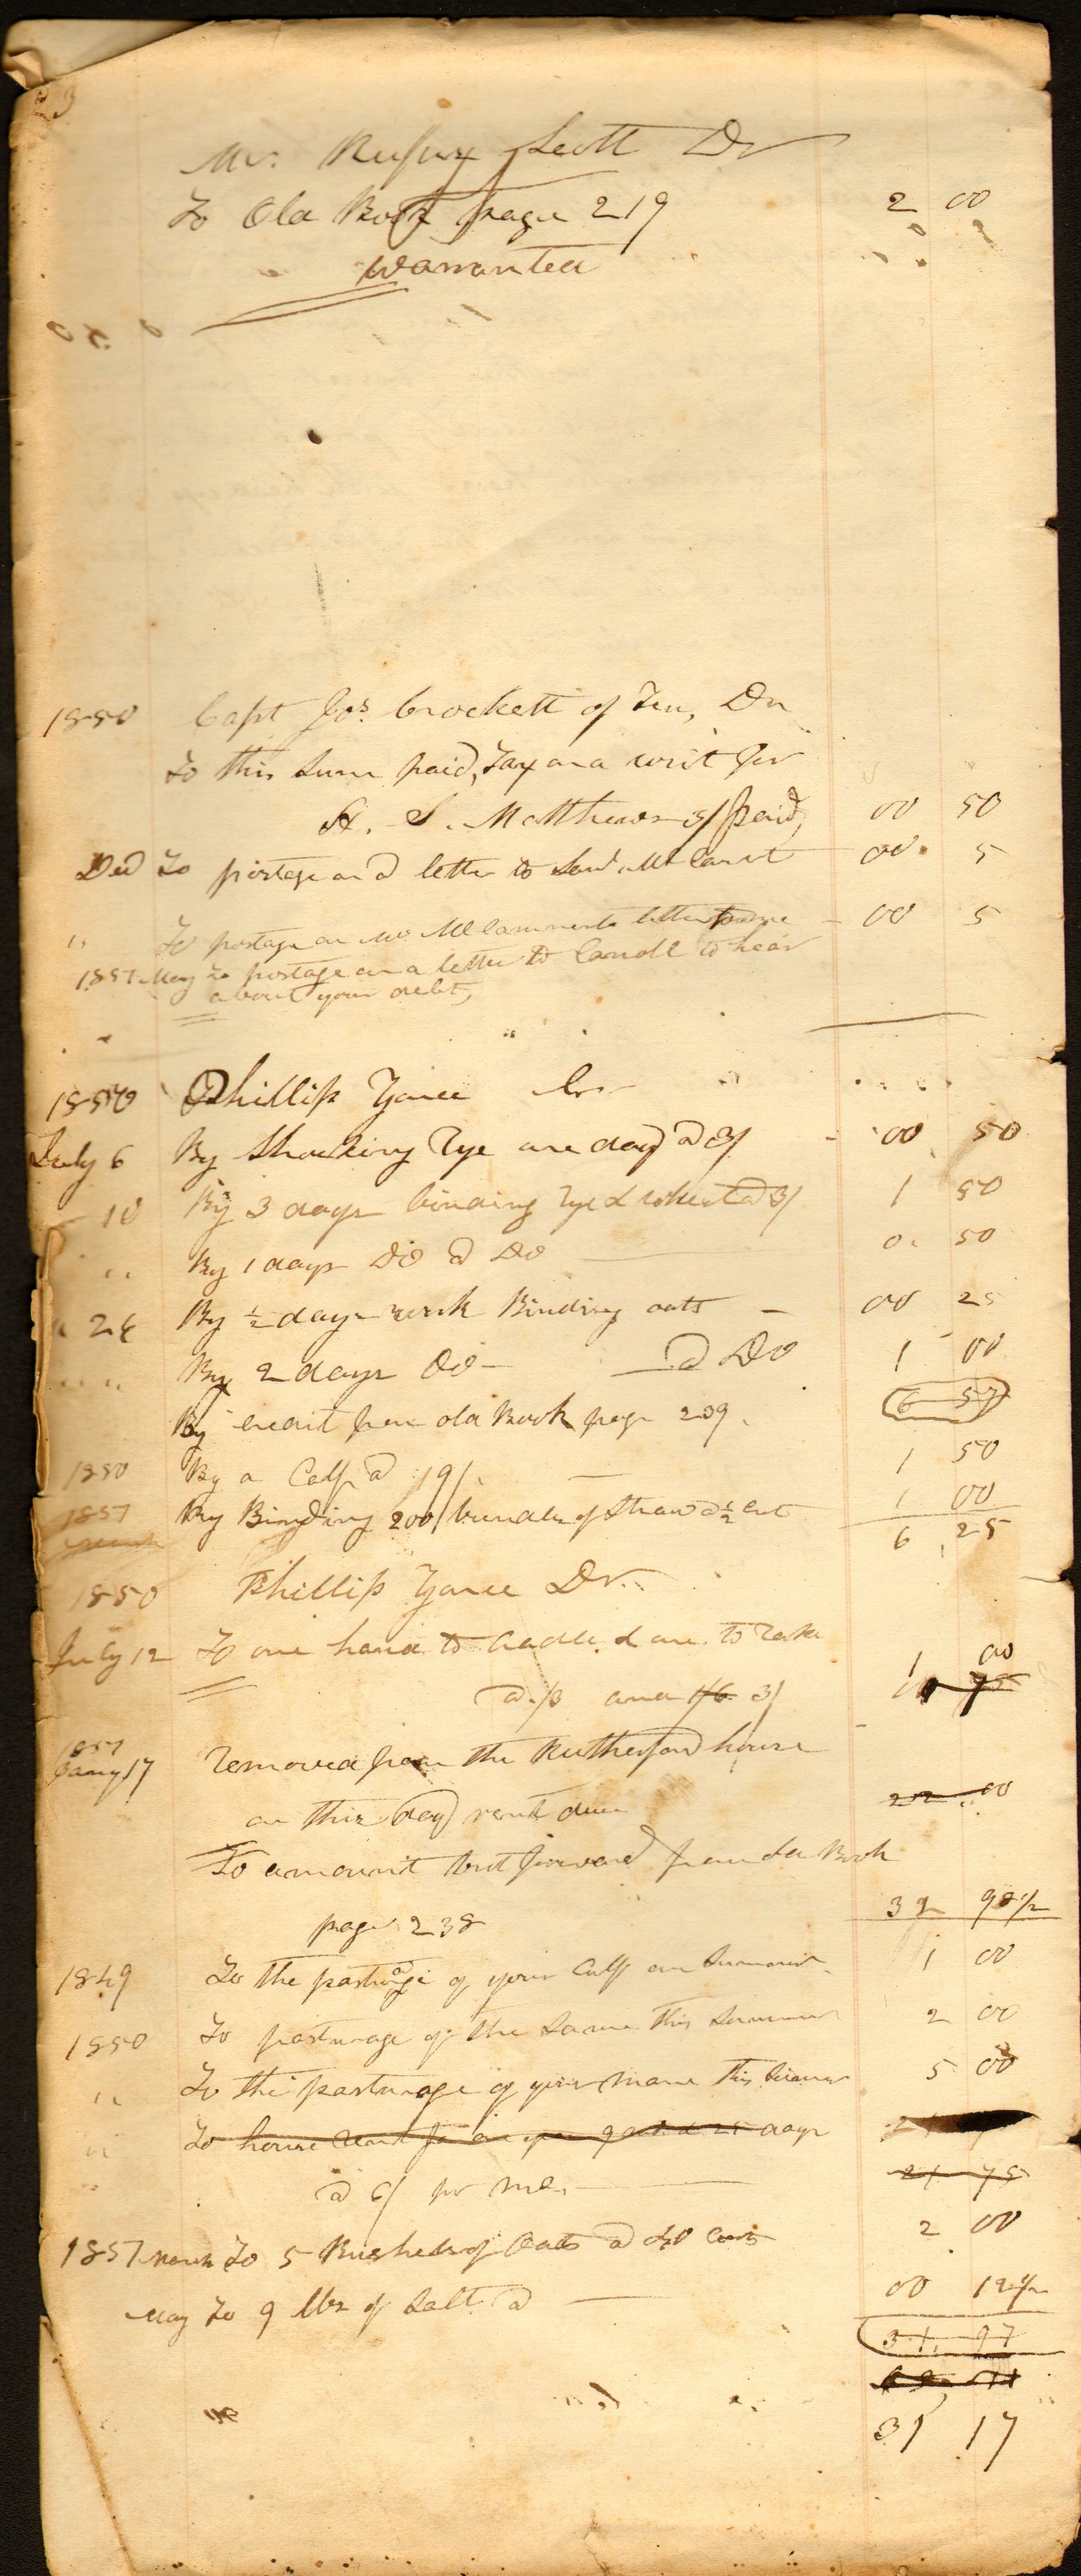 3
Mr. Rufus Scott Dr
To Old Book page 219 2 00
Warranted
1850 Capt Jos. Crockett of Ten, Dr
To this Sum paid, Tax on a writ for
H. S. Matthews 3/ paid, 00 50
Ded To postage on a letter to 00 5
" To postage on Mr letter 00 5
1851 May To postage on a letter to Carroll to hear
about your debt,
1850 Phillip Yance Cr
July 6 By Shocking Rye one day @ 3/ 00 50
10 By 3 days binding Rye & wheat @ 3/ 1 50
" By 1 days Do @ Do 0. 50
" 24 By ½ days work Binding oats 00 25
" " By 2 days Do @ Do 1 00
By credit from old Book page 239. 6 57
1850 By a Calf @ 9/. 1 50
1851 By Binding 200 bundles of Straw @ ½ cent 1 00
6 25
1850 Phillip Yance Dr.
July 12 To one hand to Cradle & one to Rake
@ /3 and 1/6 3/ 1 00
1851
Jany 17 removed from the Rutherford house
on this day rent due 22.00
To amount brot forward from Book
page 238 32 98½
1849 To the pasturage of your Calf one Summer. 1 00
1850 To pasturage of the Same this Summer 2 00
" To the pasturage of your mare this 5 00
" To house Rent for one year 9 & 25 days
@ 6/ pr 21 75
1851 March To 5 Bushels of Oats @ 40 Cents 2 00
May To 9 lbs of Salt @ 00 12½
31, 97
31 17